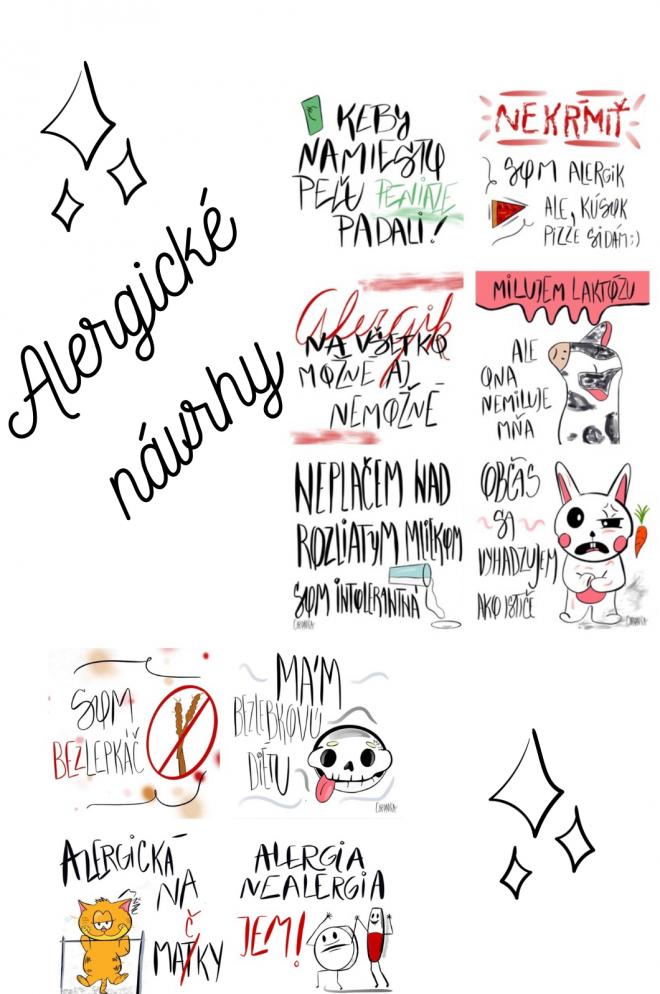 Alergické
návrhy
KEBY
NAMIESTO
PEĽU PENIAZE
PADALI!
NEKŔMIŤ
SOM ALERGIK
ALE, KÚSOK
PIZZE SI DÁM;)
Alergik
NA VŠETKO
MOŽNÉ AJ
NEMOŽNÉ
MILUJEM LAKTÓZU
ALE
ONA
NEMILUJE
MŇA
NEPLAČEM NAD
ROZLIATYM MLIEKOM
SOM INTOLERANTNÁ
OBČAS
SA
VYHADZUJEM
AKO ISTIČE
SOM
BEZLEPKÁČ
MÁM
BEZLEBKOVÚ
DIÉTU
ALERGICKÁ
NA
Č
MATKY
ALERGIA
NEALERGIA
JEM!